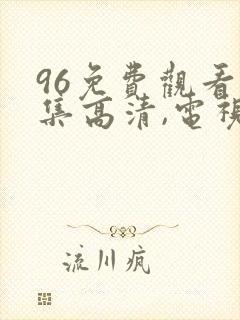 96免費觀看
集高清,電視
流川疯